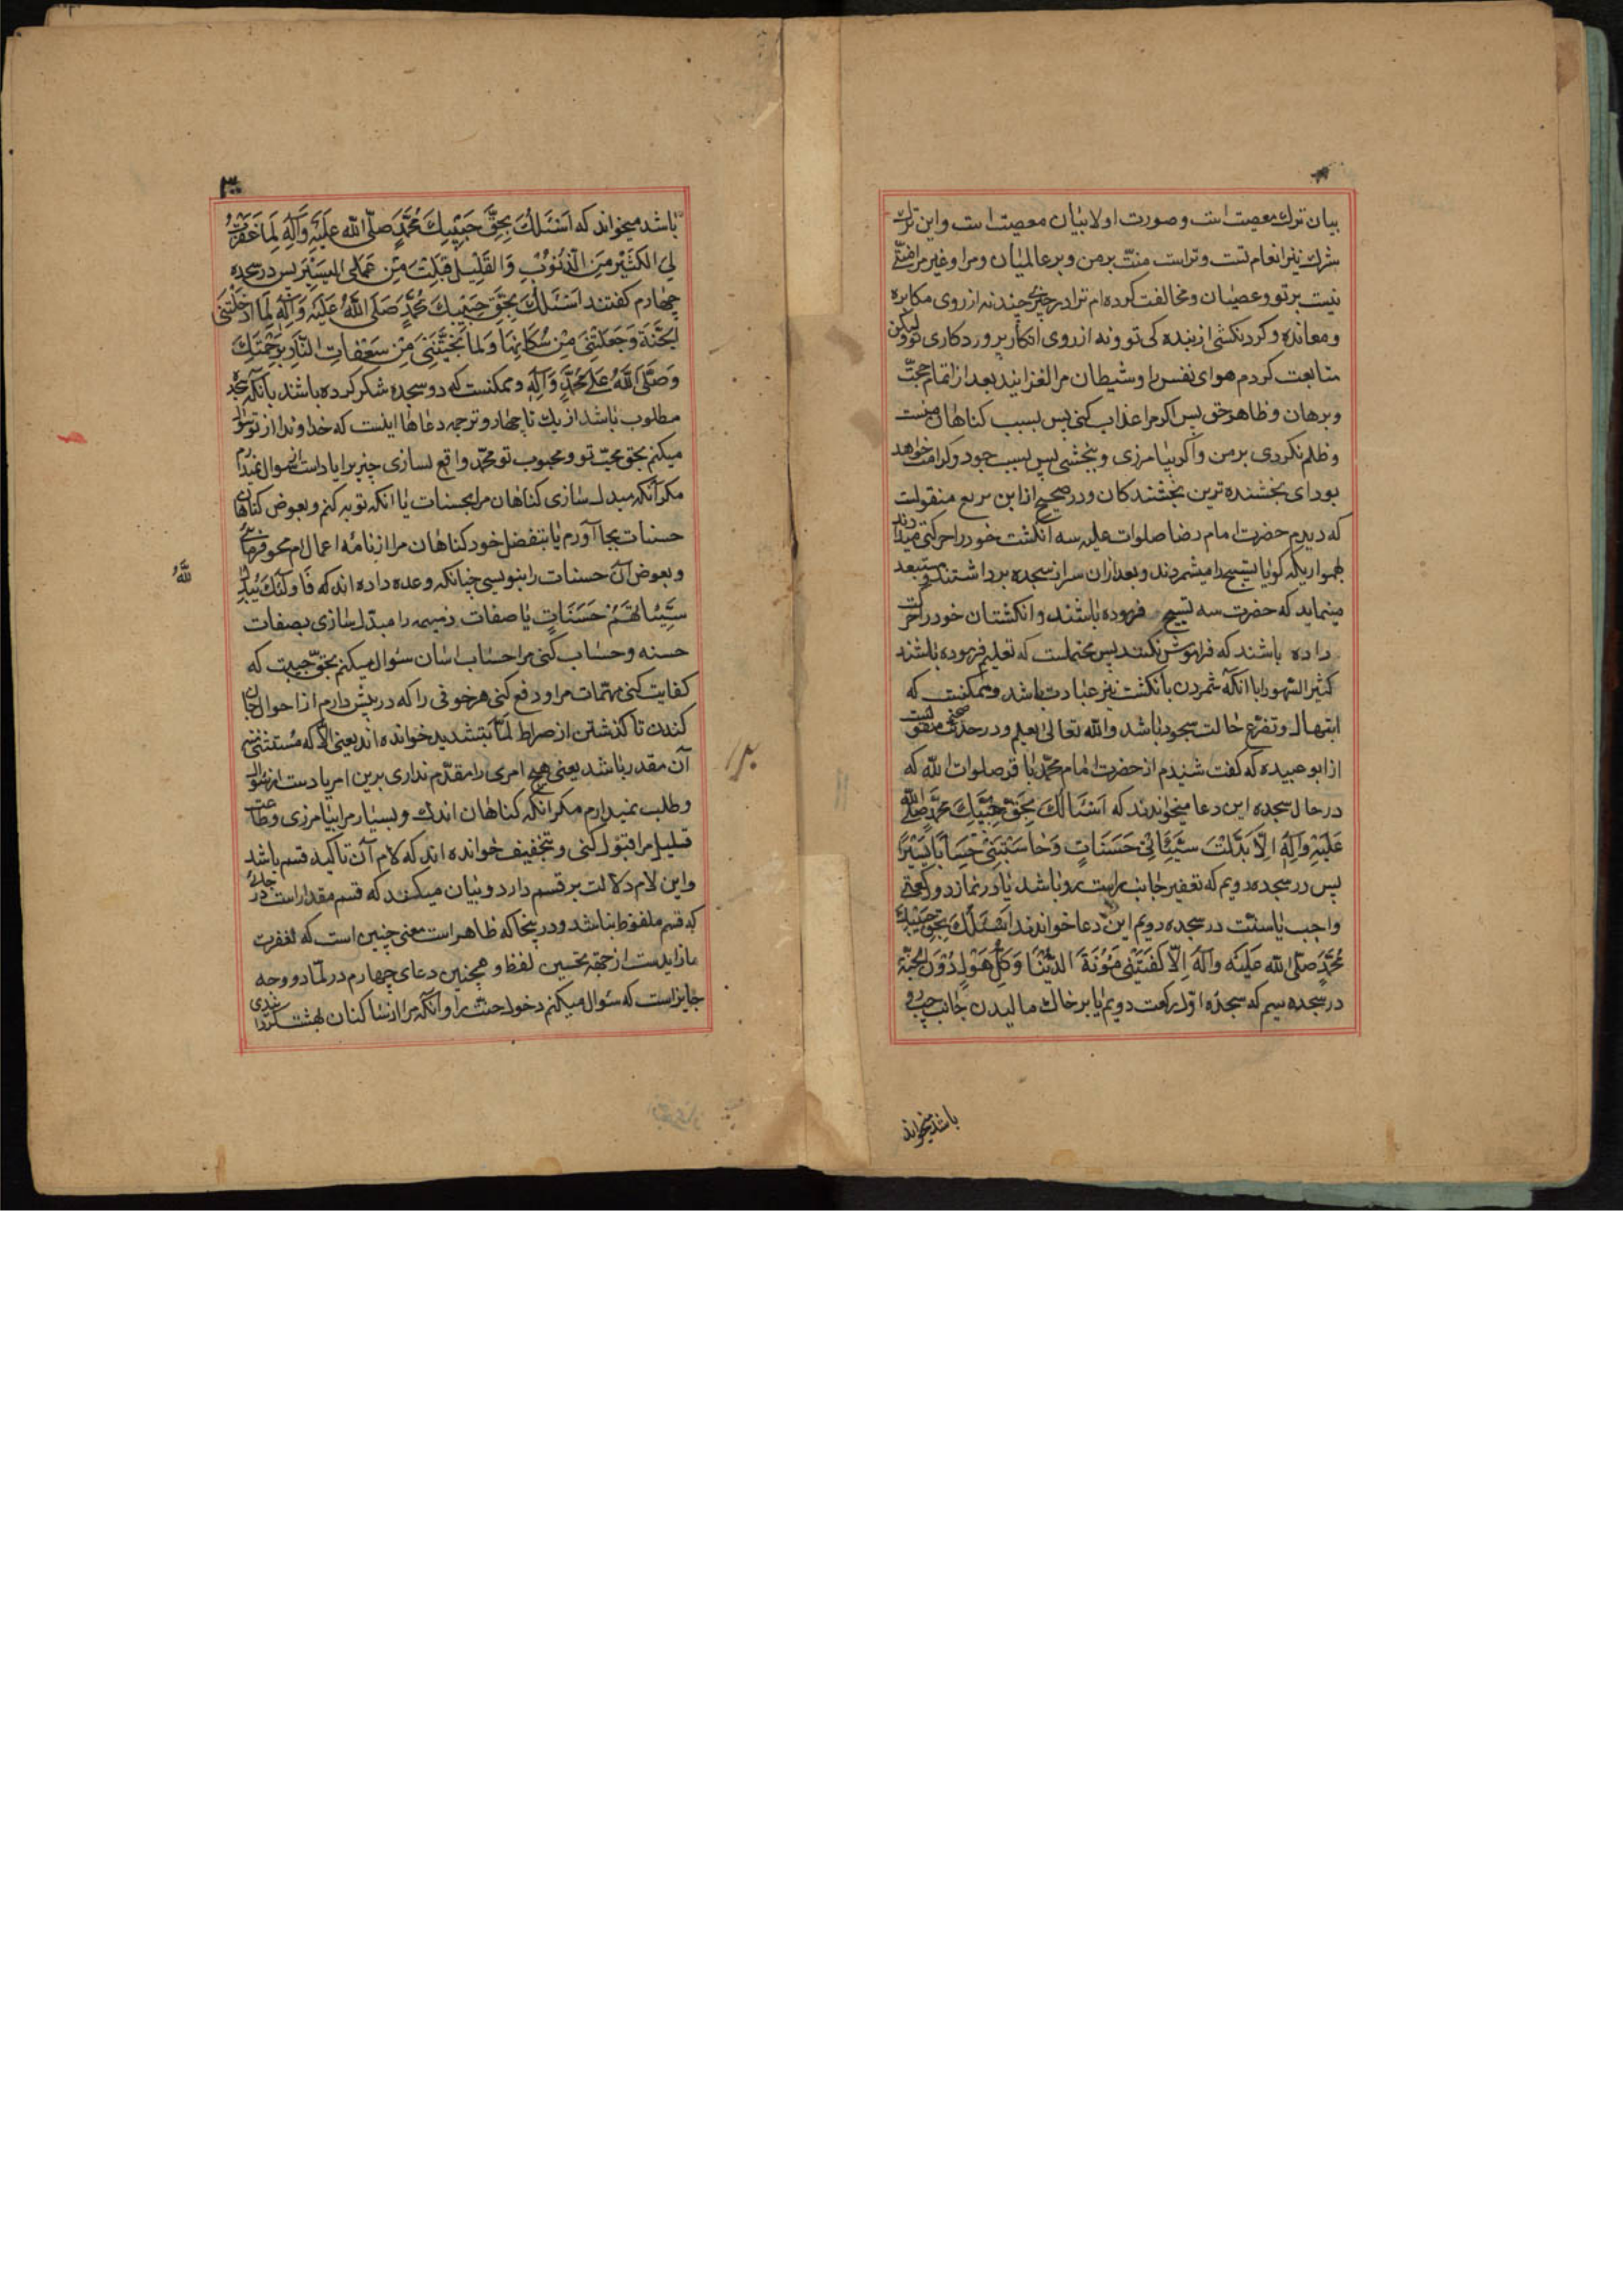 بیان ترك معصیت است و صورت اولا بیان معصیت است و این ترك
شرك نیز انعام تست و تراست منّت بر من و بر عالمیان و مرا و غیر مرا منّتی
نیست بر تو و عصیان و مخالفت کرده‌ام ترا در چیزی چند نه از روی مکابره
و معانده و گردنکشی از بنده کی تو و نه از روی انکار پروردکاری تو ولیکن
متابعت کردم هوای نفس را و شیطان مرا لغزانید بعد از اتمام حجّت
و برهان و ظاهر حق پس اکر مرا عذاب کنی پس بسبب کناهان منست
و ظلم نکردی بر من و اکر بیامرزی و ببخشی پس بسبب جود و کرامت خواهد
بود ای بخشنده ترین بخشندکان و در صحیح از ابن بزیع منقولست
که دیدم حضرت امام رضا صلوات علیه سه انکشت خود را حرکتی میدادند
بهمواریکه کویا تسبیح را میشمردند و بعد ازان سر از سجده برداشتند و مستبعد
مینماید که حضرت سه تسبیح فرموده باشند و انکشتان خود را حرکت
داده باشند که فراموش نکنند پس محتملست که تعلیم فرموده باشند
کثیر السّهو را با انکه شمردن بانکشت نیز عبادت باشد و ممکنست که
ابتهال و تضرّع حالت سجود باشد و الله تعالی یعلم و در حدیث صحیح منقولست
از ابو عبیده که کفت شنیدم از حضرت امام محمّد باقر صلوات الله که
در حال سجده این دعا میخواندند که اَسْئَالُكَ بِحَقِّ حَبِیْبِكَ مُحَمَّدٍ صَلَّی الله
عَلَیْهِ وَآلِهٖ اِلَّا بَدَّلْتَ سَیِّئَاتِیْ حَسَنَاتٍ وَحَاسَبْتَنِیْ حِسَابًا یَسِیْرًا
پس در سجده دویم که تعفیر جانب راست رو باشد یا در نماز دو رکعتی
واجب یا سنّت در سجده دویم این دعا خواندند اَسْئَلُكَ بِحَقِّ حَبِیْبِكَ
مُحَمَّدٍ صَلَّی الله عَلَیْه وآلهِ اِلَّا کَفَیْتَنِیْ مَؤُنَةَ الدُّنْیَا وَکُلَّ هَوْلٍ دُوْنَ الْجَنَّةِ
در سجده سیم که سجده اوّل رکعت دویم یا بر خاك مالیدن جانب چپ رو
باشد میخواند
٣٠
باشد میخواند که اَسْئَلُكَ بِحَقِّ حَبِیْبِكَ مُحَمَّدٍ صلّی الله عَلَیْهِ وَآلِهِ لِمَا غَفَرْتَ
لِي الکَثِیْرَ مِنَ الذُّنُوْبِ وَالقَلِیْلَ قَبِلْتَ مِنْ عَمَلِی الیَسِیْرَ پس در سجده
چهارم کفتند اَسْئَلُكَ بِحَقِّ حَبِیْبِكَ مُحَمَّدٍ صَلَّی اللهُ عَلَیْهِ وَآلِهِ لِمَا اَدْخَلْتَنِی
الجَنَّةَ وَجَعَلْتَنِیْ مِنْ سُکَّانِهَا وَلَمَا نَجَّیْتَنِیْ مِنْ سَعَفَاتِ النَّارِ بِرَحْمَتِكَ
وَصَلَّی اللهُ عَلیٰ مُحَمَّدٍ وَآلِهِ و ممکنست که دو سجده شکر کرده باشند با انکه سجده
مطلوب باشد از یك تا چهار و ترجمه دعاها اینست که خداوندا از تو سؤال
میکنم بحق محبّ تو و محبوب تو محمّد واقع نسازی چیزیرا یا دست از سوال نمیدارم
مکر آنکه مبدل سازی کناهان مرا بحسنات یا انکه توبه کنم و بعوض کناهان
حسنات بجا آورم یا بتفضل خود کناهان مرا از نامه اعمال‌ام محو فرمائی
و بعوض آن حسنات را بنویسی چنانکه وعده داده اند که فَاُولٰئِكَ یُبَدِّلُ
اللّٰهُ
سَیِّئَاتِهِمْ حَسَنَاتٍ یا صفات ذمیمه را مبدّل سازی بصفات
حسنه و حساب کنی مرا حساب اسان سئوال میکنم بحقّ حبیبت که
کفایت کنی مهمّات مرا و دفع کنی هر خوفی را که در پیش دارم از احوال جان
کندن تا کذشتن از صراط لمّا بتشدید خوانده اند یعنی الّا که مُستثنی منه
آن مقدر باشد یعنی هیچ امری را مقدّم نداری برین امر یا دست از سؤال
و طلب نمیدارم مکر انکه کناهان اندك و بسیار مرا بیامرزی و طاعت
قلیل مرا قبول کنی و بتخفیف خوانده اند که لام آن تاکید قسم باشد
و این لام دلالت بر قسم دارد و بیان میکند که قسم مقدر است در جائی
که قسم ملفوظ نباشد و در ینجا که ظاهر است معنی چنین است که لغفرت
ما زایدست از جهة تحسین لفظ و همچنین دعای چهارم در لمّا دو وجه
جایز است که سئوال میکنم دخول جنّت را و آنکه مرا از ساکنان بهشت کردانی